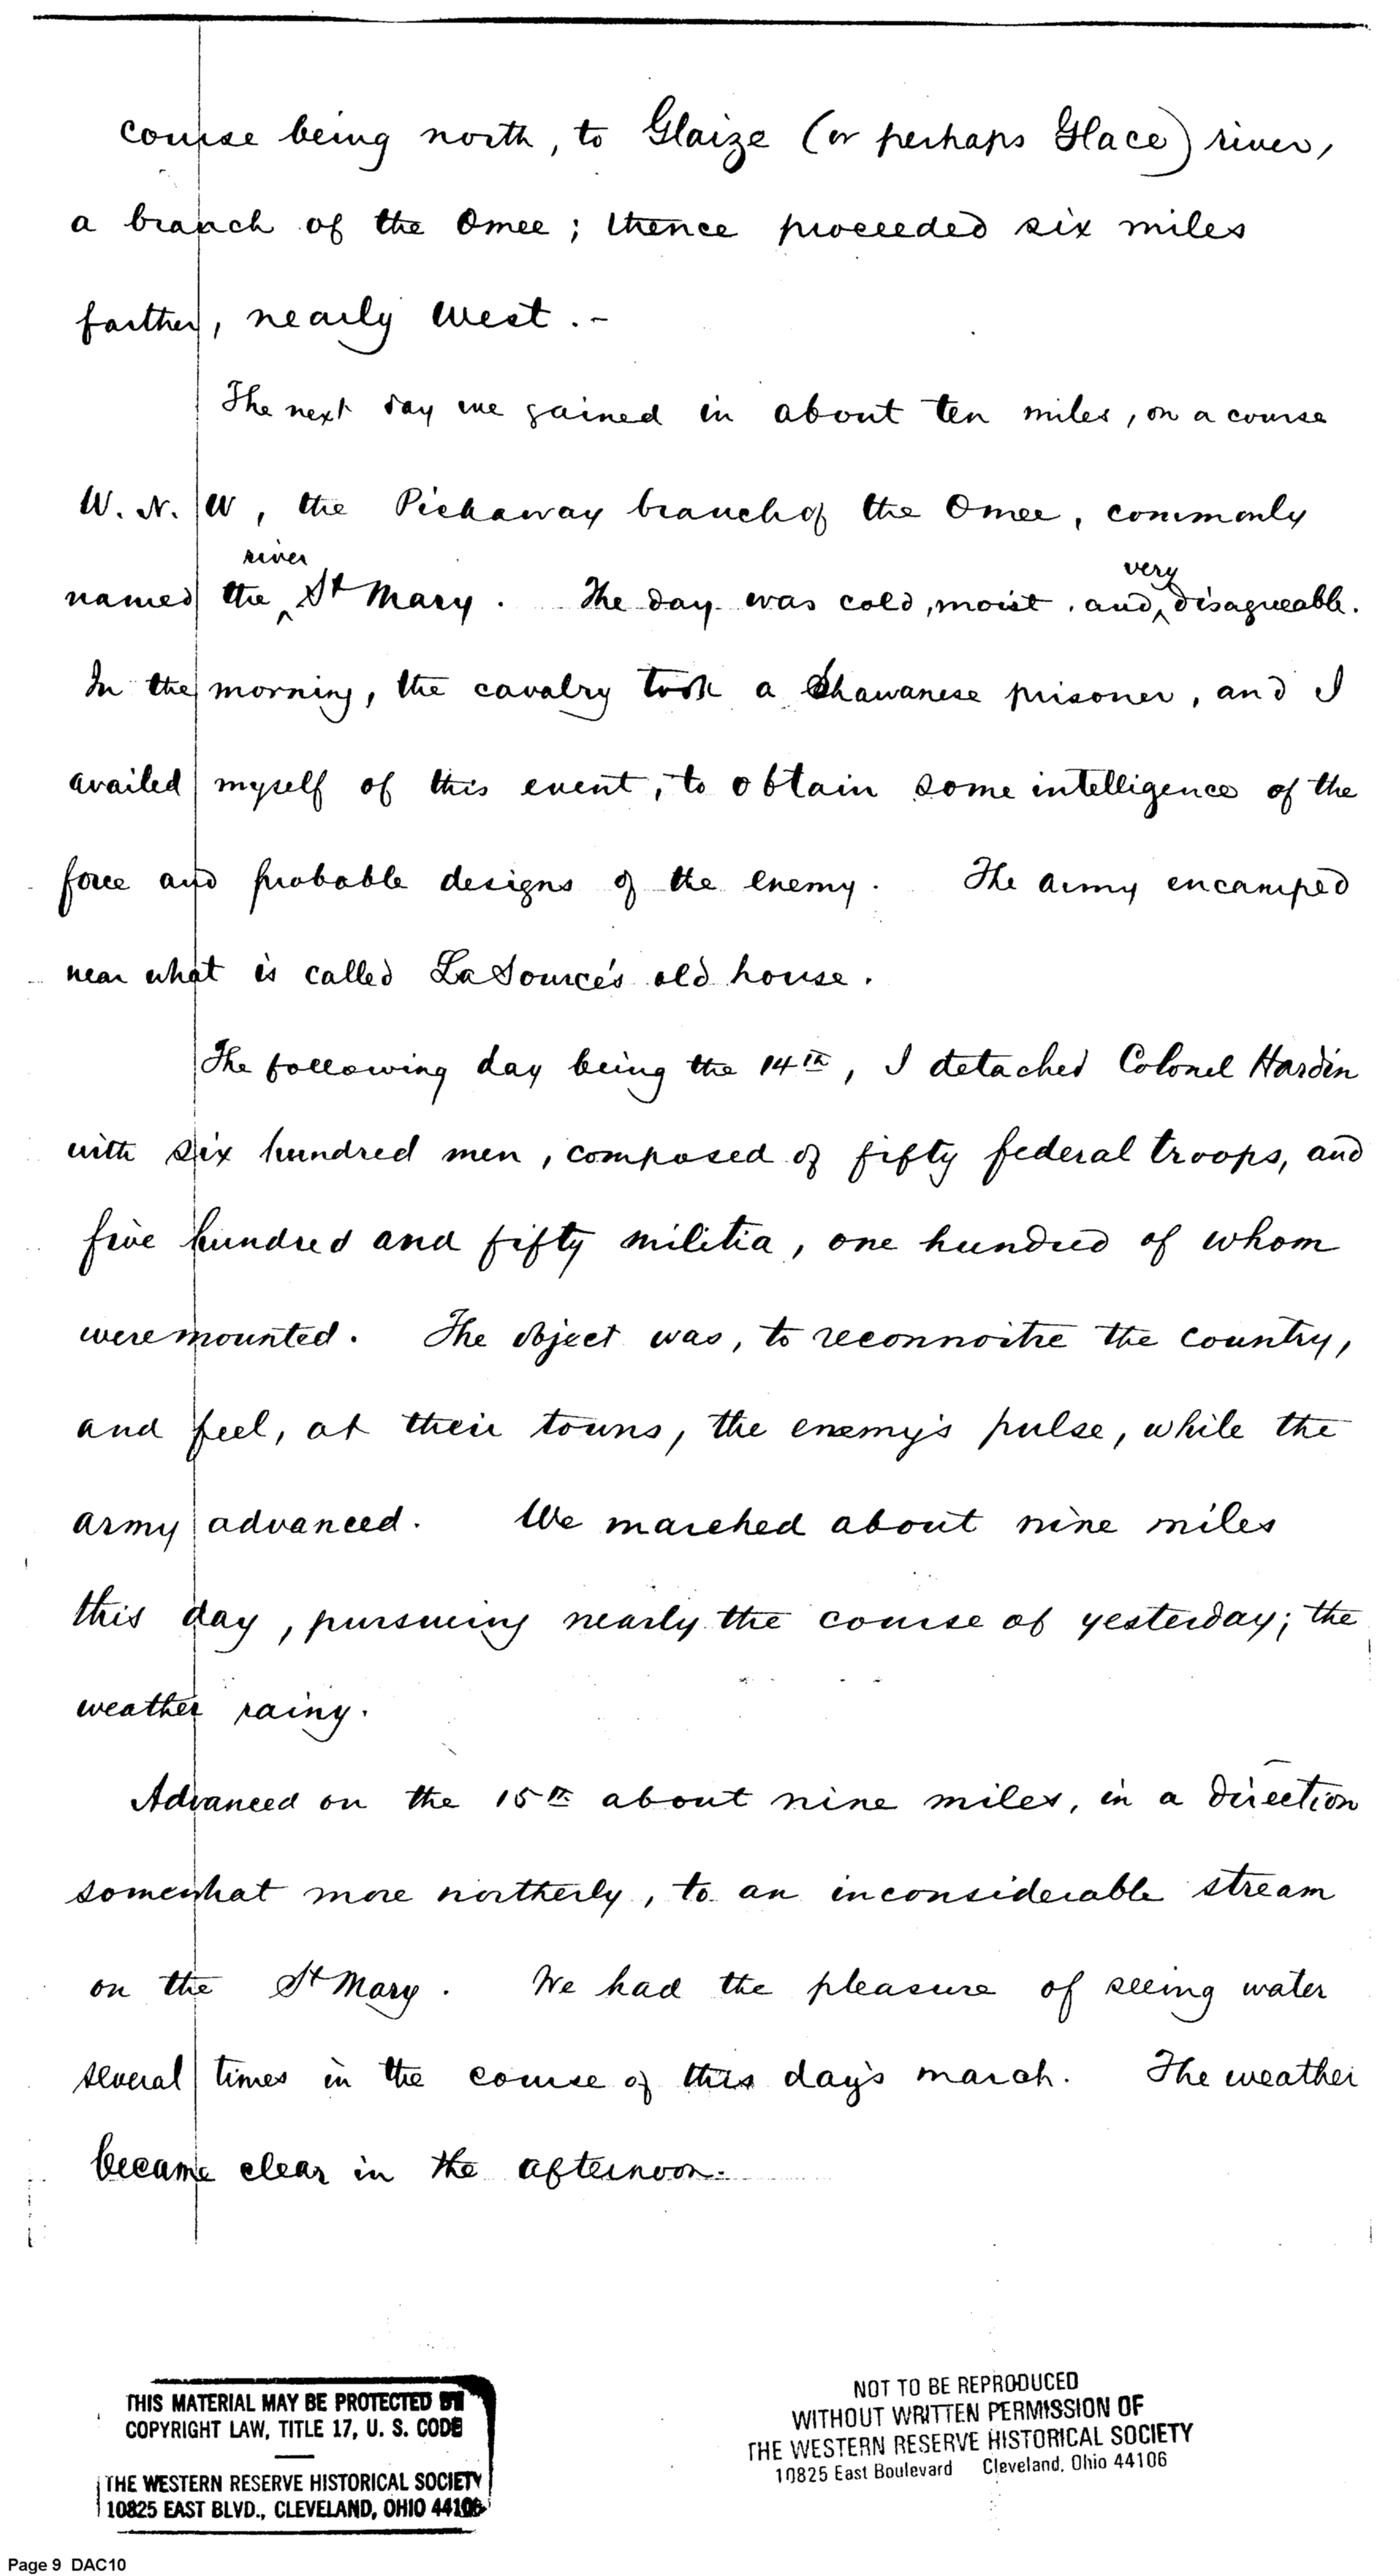 course being north, to Glaize (or perhaps Glace) river,
a branch of the Omee; thence proceeded six miles
farther, nearly west. -
The next day we gained in about ten miles, on a course
W. N. W, the Pickaway branch of the Omee, commonly
river very
named the ‸ St Mary. The day was cold, moist, and ‸ disagreeable.
In the morning, the cavalry took a Shawanese prisoner, and I
availed myself of this event, to obtain some intelligence of the
force and probable designs of the enemy. The army encamped
near what is called La Source's old house.
The following day being the 14th, I detached Colonel Hardin
with six hundred men, composed of fifty federal troops, and
five hundred and fifty militia, one hundred of whom
were mounted. The object was, to reconnoitre the country,
and feel, at their towns, the enemy's pulse, while the
army advanced. We marched about nine miles
this day, pursueing nearly the course of yesterday; the
weather rainy.
Advanced on the 15th about nine miles, in a direction
somewhat more northerly, to an inconsiderable stream
on the St Mary. We had the pleasure of seeing water
several times in the course of this day's march. The weather
became clear in the afternoon.
THIS MATERIAL MAY BE PROTECTED BY
COPYRIGHT LAW, TITLE 17, U. S. CODE
THE WESTERN RESERVE HISTORICAL SOCIETY
10825 EAST BLVD., CLEVELAND, OHIO 44106
NOT TO BE REPRODUCED
WITHOUT WRITTEN PERMISSION OF
THE WESTERN RESERVE HISTORICAL SOCIETY
10825 East Boulevard Cleveland, Ohio 44106
Page 9 DAC10